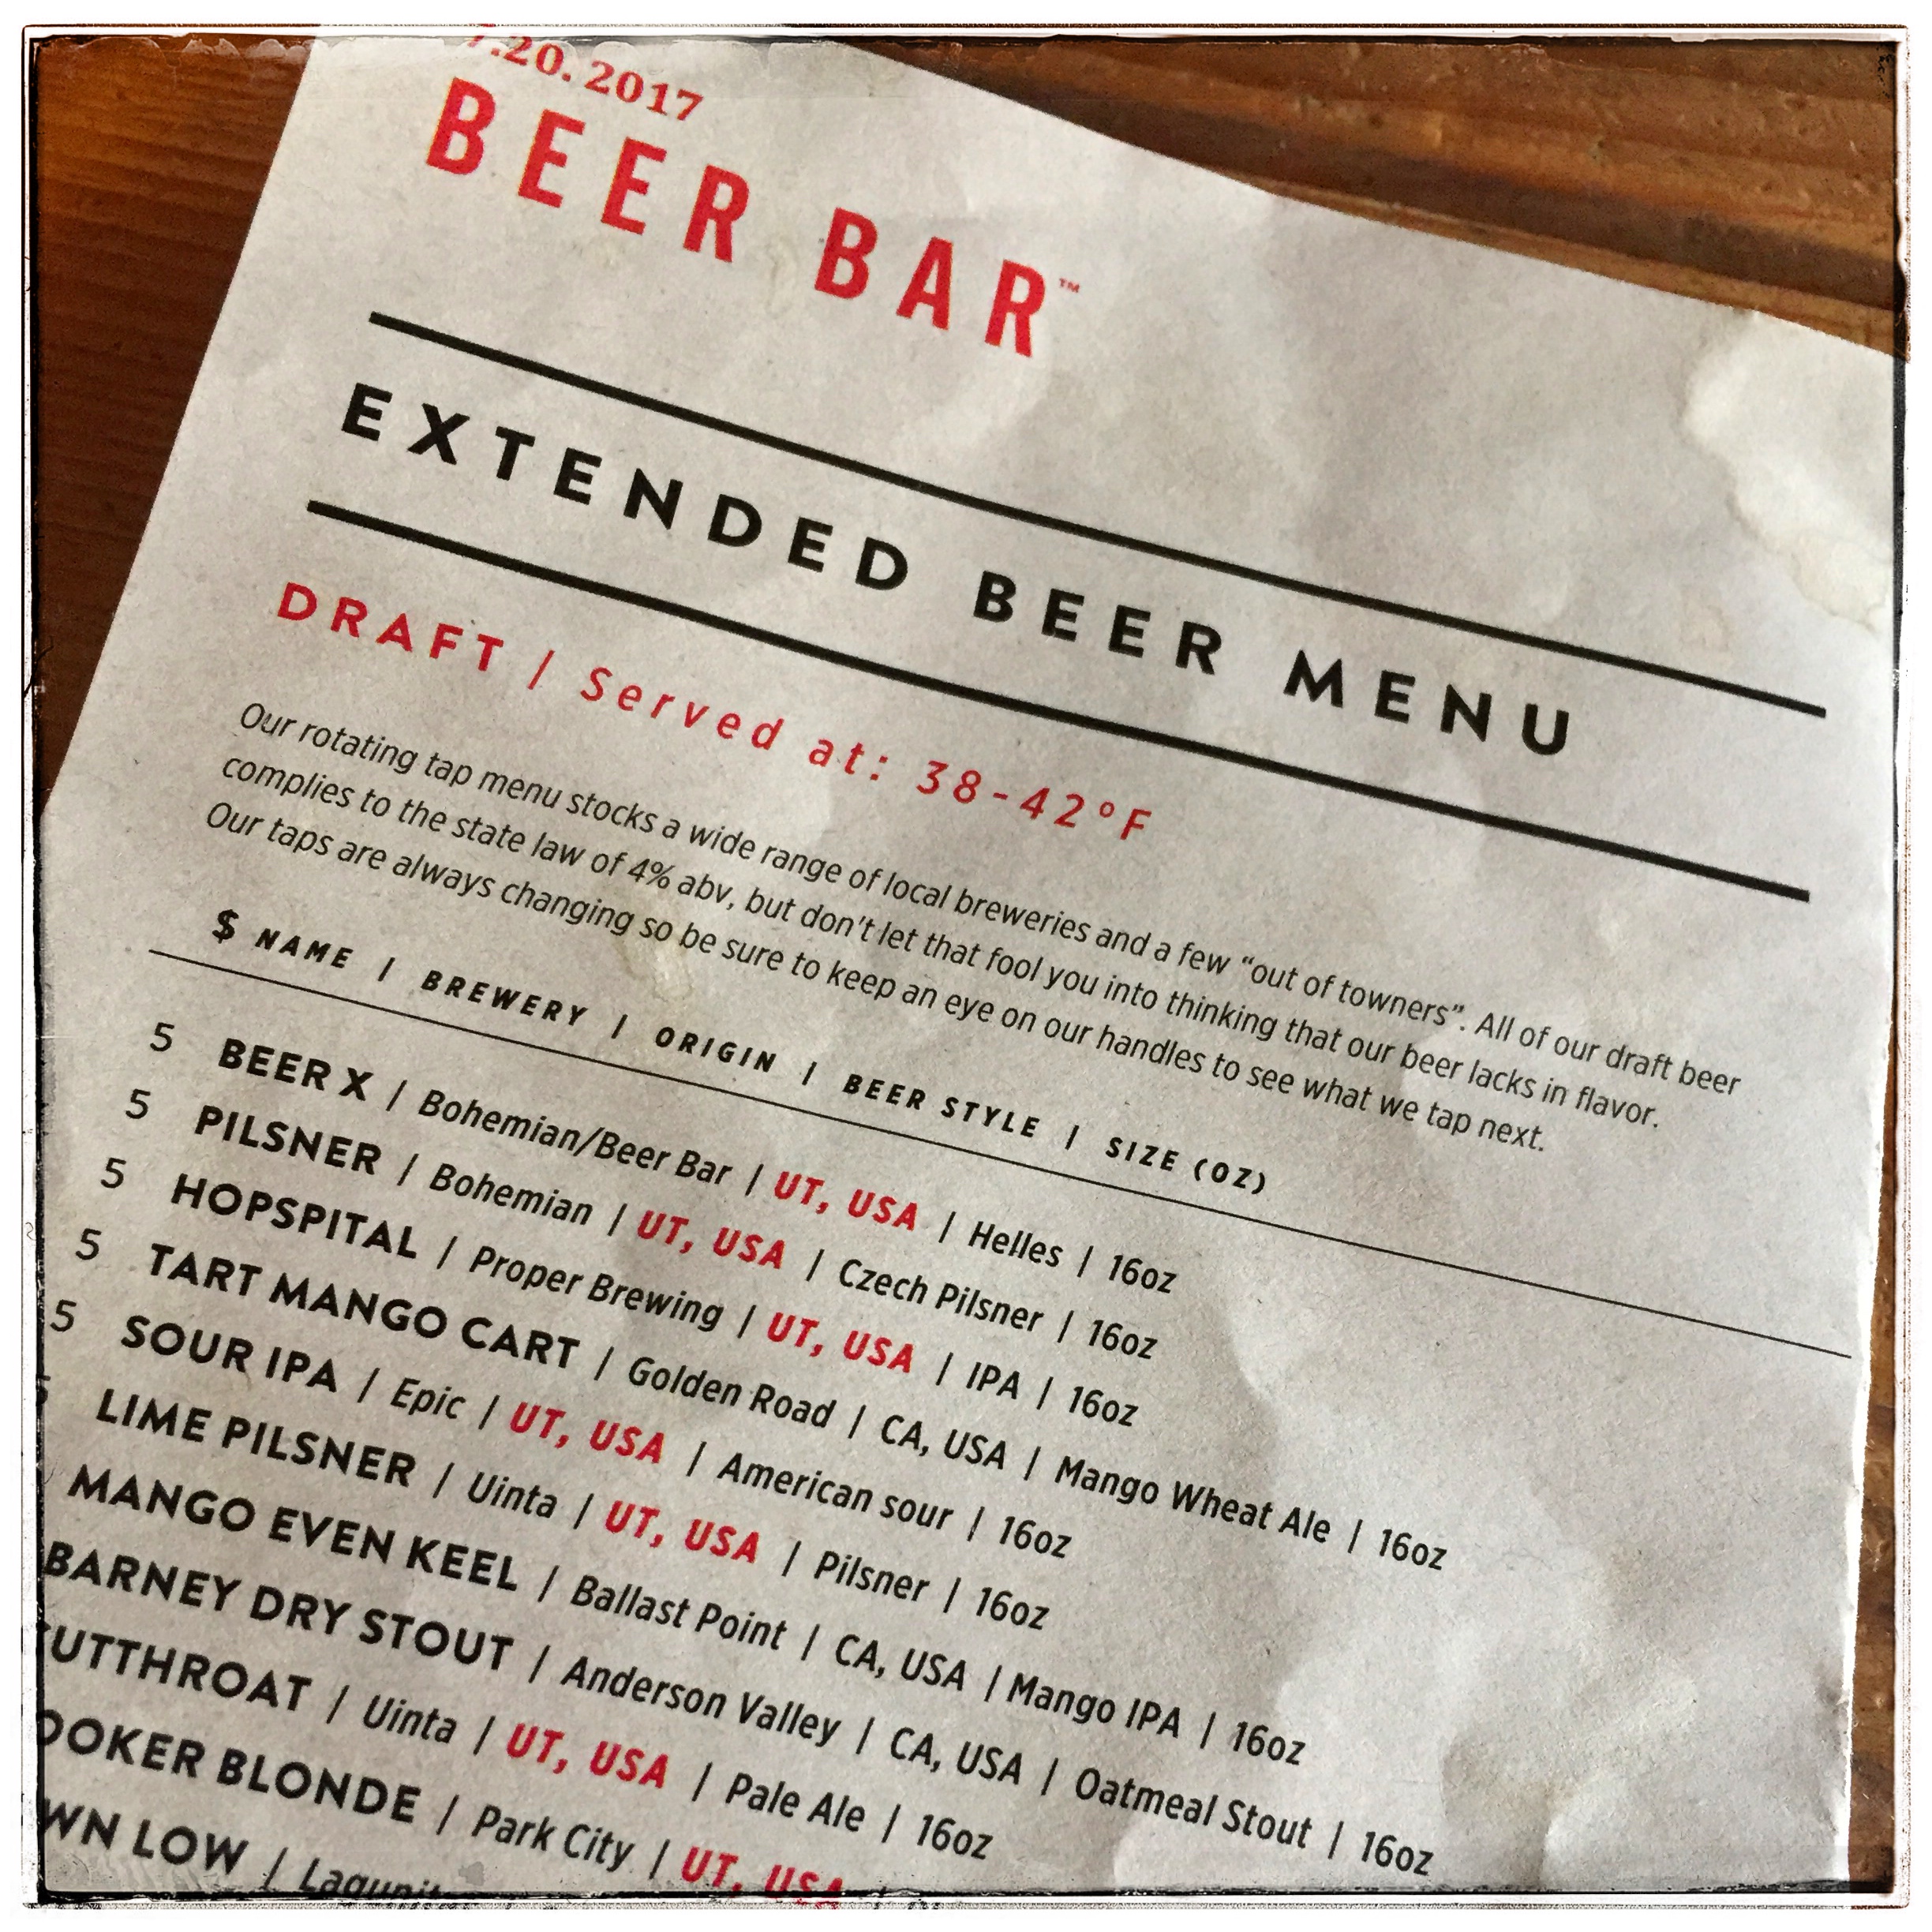 7.20.2017
BEER BAR™
EXTENDED BEER MENU
DRAFT / Served at: 38-42°F
Our rotating tap menu stocks a wide range of local breweries and a few “out of towners”. All of our draft beer
complies to the state law of 4% abv, but don't let that fool you into thinking that our beer lacks in flavor.
Our taps are always changing so be sure to keep an eye on our handles to see what we tap next.
$ NAME | BREWERY | ORIGIN | BEER STYLE | SIZE (OZ)
5 BEER X / Bohemian/Beer Bar | UT, USA | Helles | 16oz
5 PILSNER / Bohemian | UT, USA | Czech Pilsner | 16oz
5 HOPSPITAL / Proper Brewing | UT, USA | IPA | 16oz
5 TART MANGO CART / Golden Road | CA, USA | Mango Wheat Ale | 16oz
5 SOUR IPA / Epic | UT, USA | American sour | 16oz
5 LIME PILSNER / Uinta | UT, USA | Pilsner | 16oz
MANGO EVEN KEEL / Ballast Point | CA, USA | Mango IPA | 16oz
BARNEY DRY STOUT / Anderson Valley | CA, USA | Oatmeal Stout | 16oz
CUTTHROAT / Uinta | UT, USA | Pale Ale | 16oz
OOKER BLONDE / Park City | UT, USA
WN LOW /